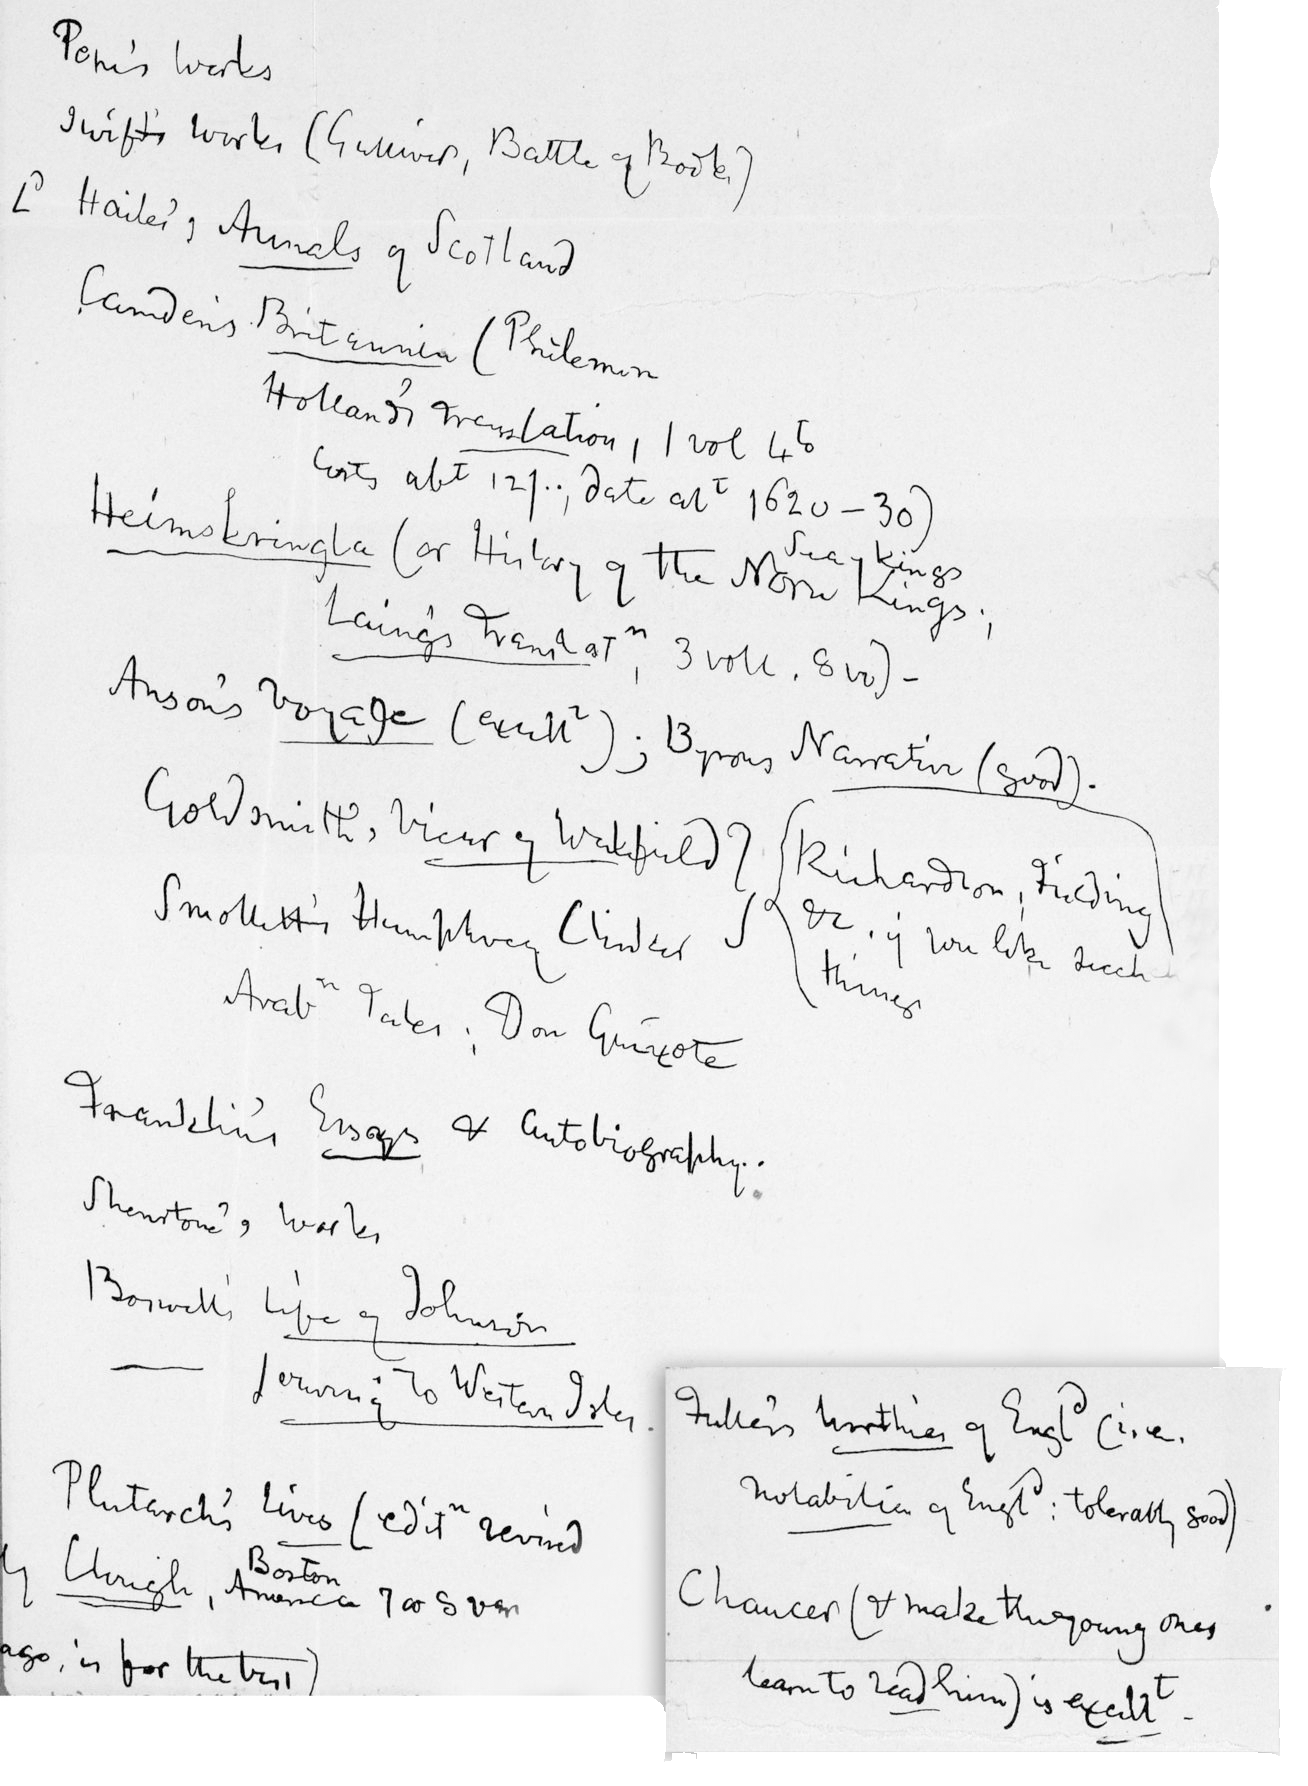 Pope's Works
Swift's Works (Gulliver, Battle of Books)
Ld Hailes's Annals of Scotland
Camden's Britannia (Philemon
Holland's Translation, 1 vol 4to
Costs abt 12/..; date abt 1620–30)
Heimskringla (or History of the Norse Sea Kings Kings;
Laing's Translatn, 3 voll. 8vo) –
Anson's Voyage (excellt); Byrons Narrative (good).
Goldsmith's Vicar of Wakefield
Smollett's Humphrey Clinker
Richardson, Fielding
&c, if you like such
things
Arabn Tales; Don Quixote
Franklin's Essays & Autobiography.
Shenstone's Works
Boswell's Life of Johnson
—— Journey to Western Isles.
Plutarch's Lives (editn revised
by Clough, Boston America 7 or 8 years
ago, is far the best)
Fuller's Worthies of Engld (i.e.
notabilia of Engld: tolerably good)
Chaucer (& make the young ones
learn to read him) is excellt –